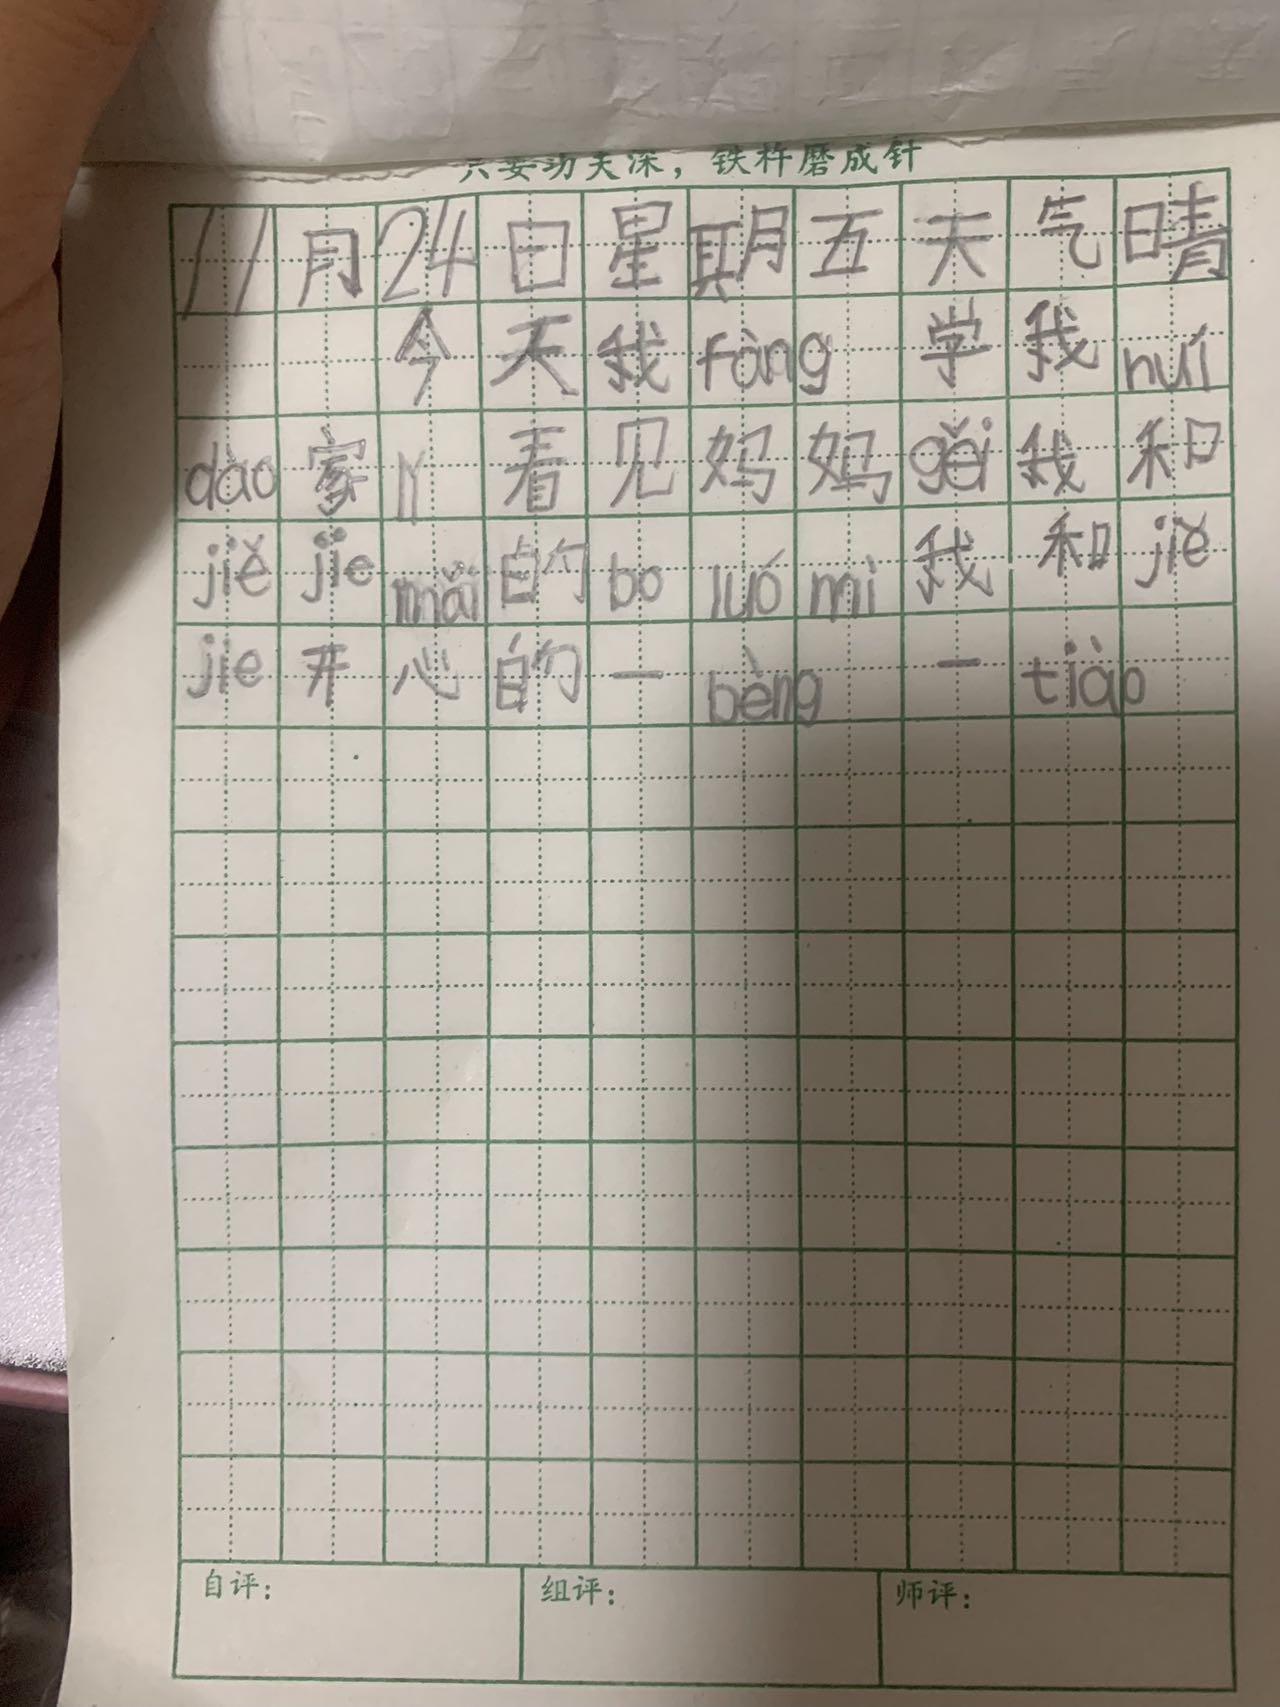 只要功夫深，铁杵磨成针
11月24日星期五天气晴
今天我fàng学我huí
dào家看见妈妈gěi我和
jiě jie mǎi的bo luó mì我和jiě
jie开心的一bèng一tiào
自评： 组评： 师评：